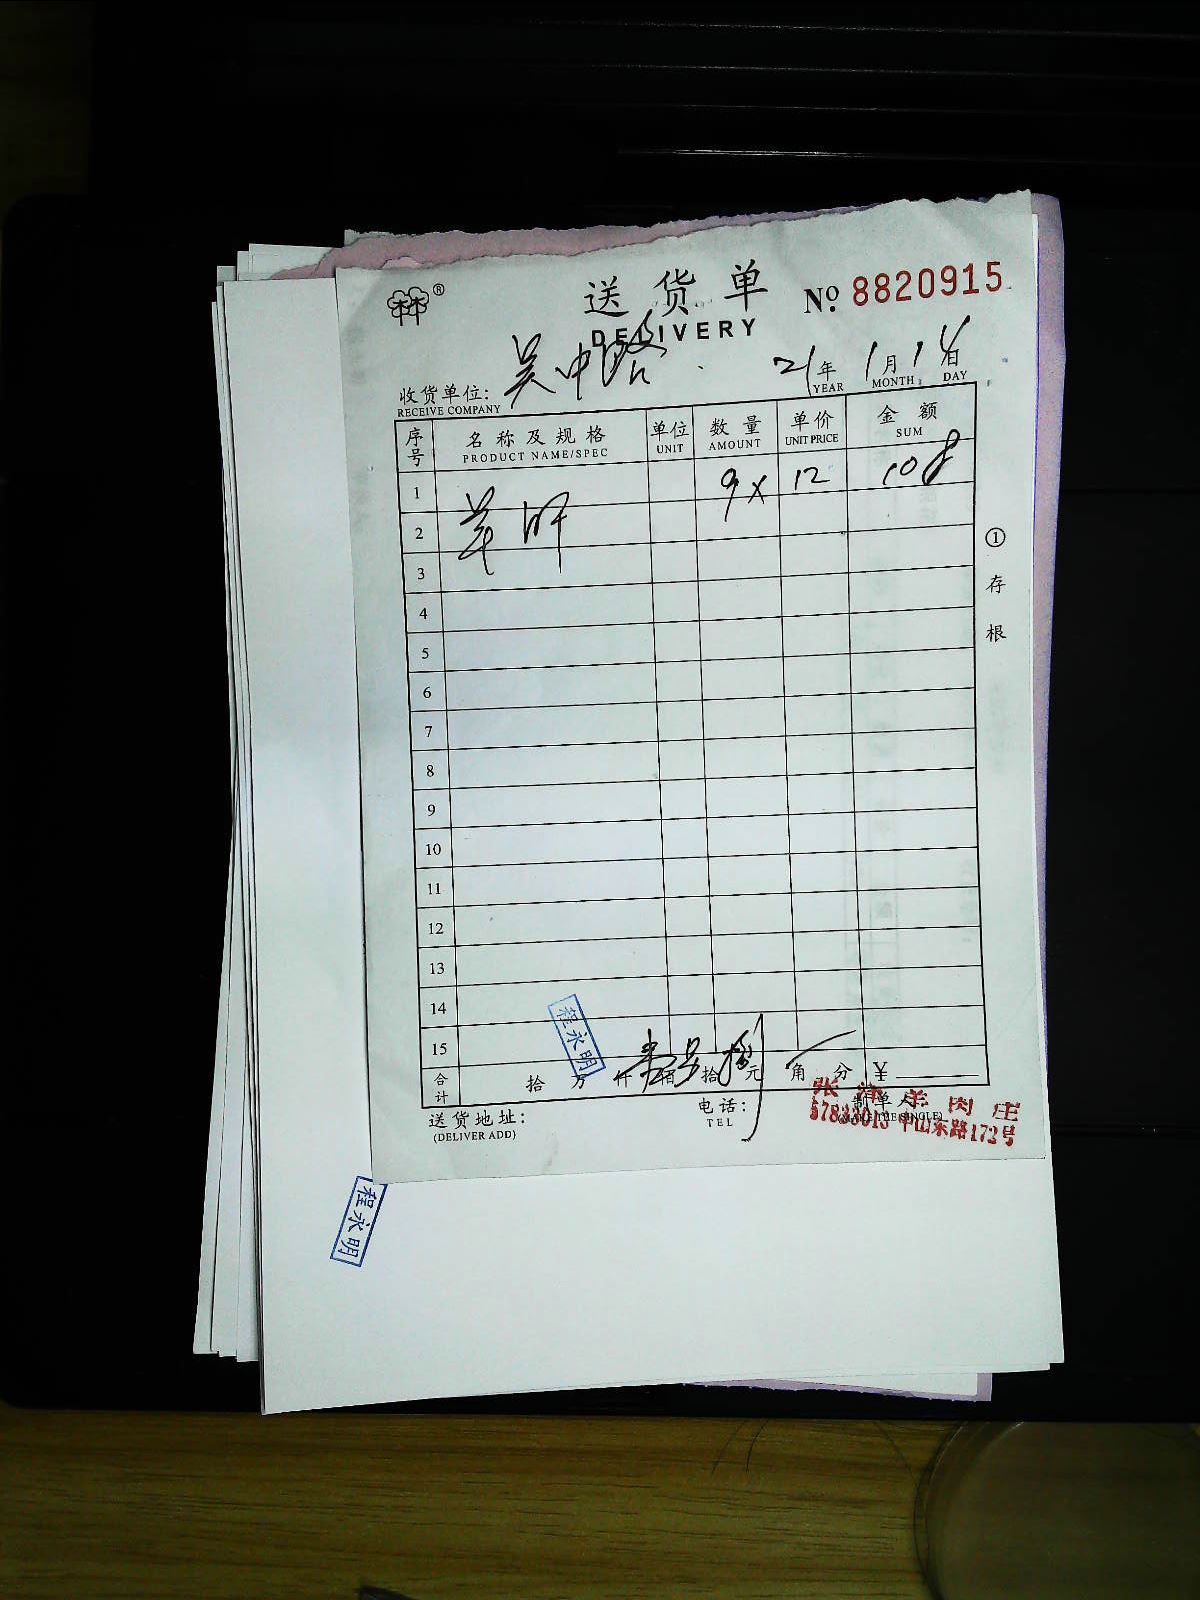 林 ®
送货单
№ 8820915
DELIVERY
收货单位: 吴中路
RECEIVE COMPANY
21年 1月 14日
YEAR MONTH DAY
序号 名称及规格 单位 数量 单价 金额
PRODUCT NAME/SPEC UNIT AMOUNT UNIT PRICE SUM
1 9× 12 108
2 羊肝
3
4
5
6
7
8
9
10
11
12
13
14
15
程永明
合计 拾 万 仟 佰 拾 元 角 分 ¥
送货地址:
(DELIVER ADD)
电话:
TEL
制单人
羊肉庄
中山东路172号
①存根
程永明